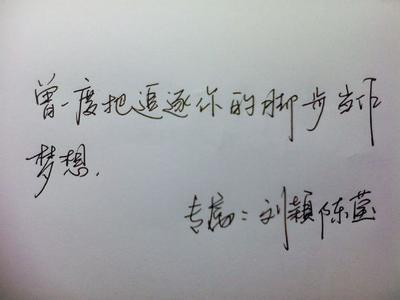 曾一度把追逐你的脚步当作
梦想.
专属：刘颖陈莹